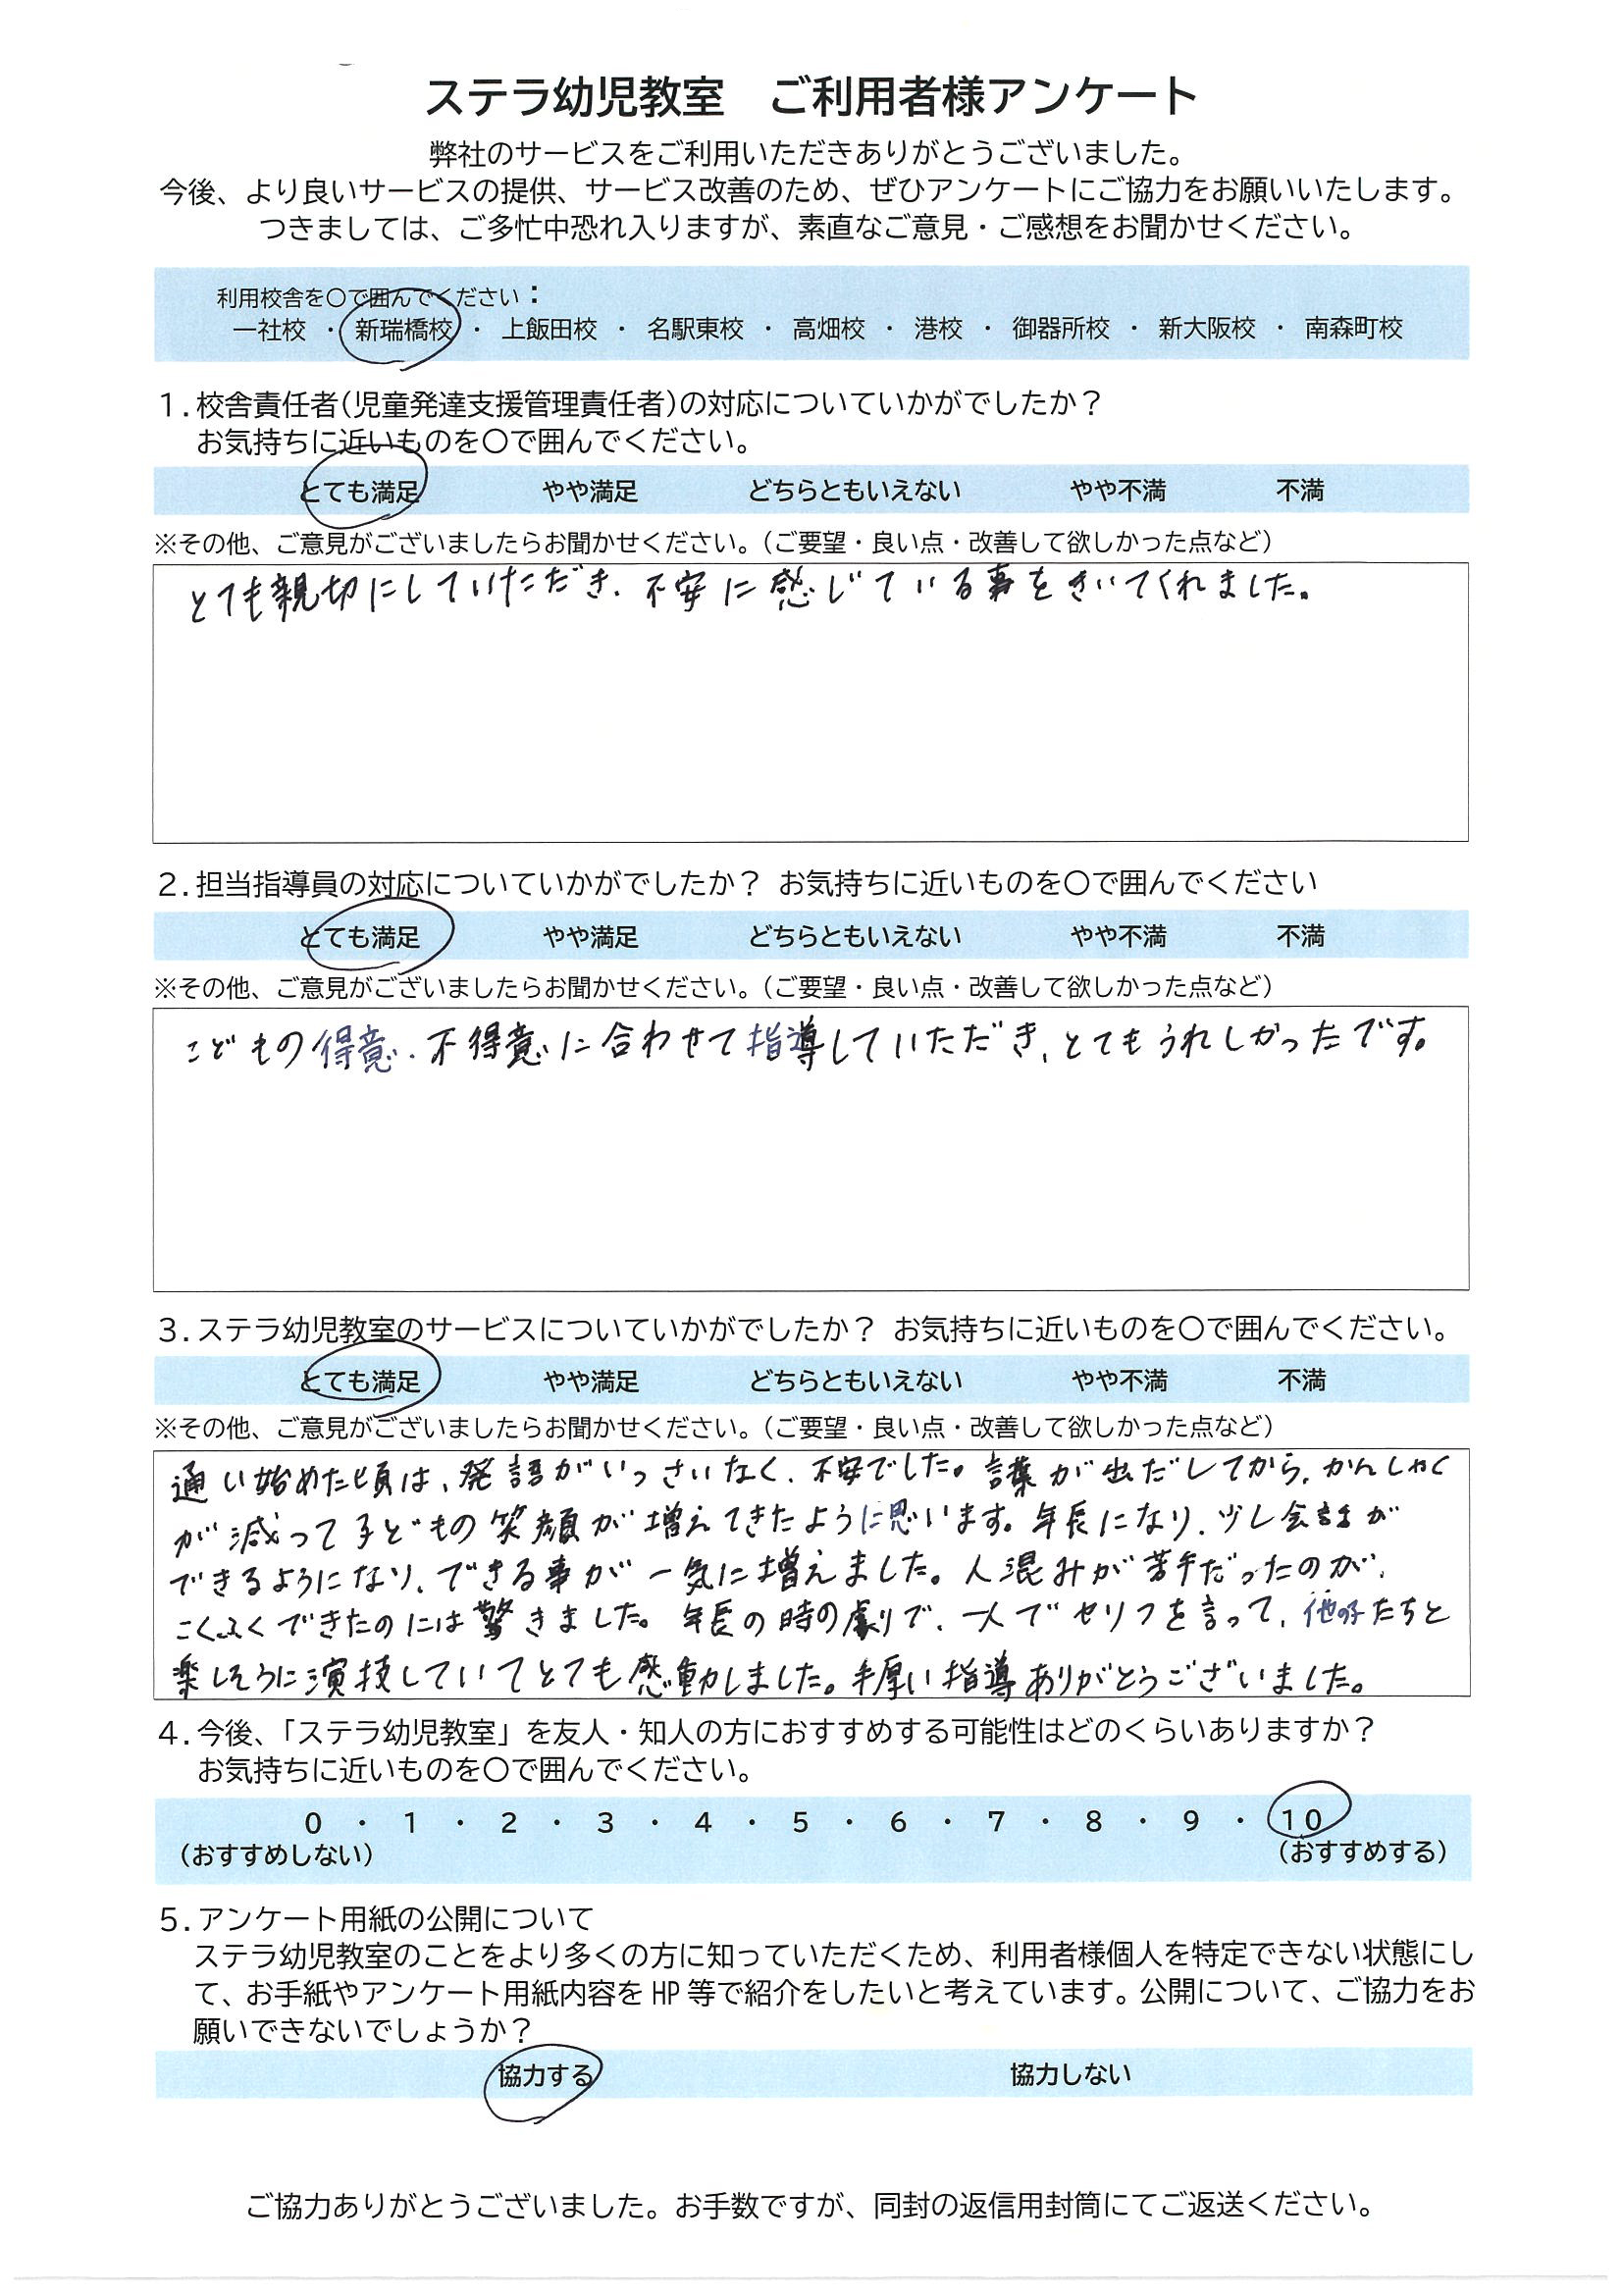 ステラ幼児教室　ご利用者様アンケート
弊社のサービスをご利用いただきありがとうございました。
今後、より良いサービスの提供、サービス改善のため、ぜひアンケートにご協力をお願いいたします。
つきましては、ご多忙中恐れ入りますが、素直なご意見・ご感想をお聞かせください。
利用校舎を〇で囲んでください：
一社校 ・ 新瑞橋校 ・ 上飯田校 ・ 名駅東校 ・ 高畑校 ・ 港校 ・ 御器所校 ・ 新大阪校 ・ 南森町校
１．校舎責任者（児童発達支援管理責任者）の対応についていかがでしたか？
お気持ちに近いものを〇で囲んでください。
とても満足　やや満足　どちらともいえない　やや不満　不満
※その他、ご意見がございましたらお聞かせください。（ご要望・良い点・改善して欲しかった点など）
とても親切にしていただき、不安に感じている事をきいてくれました。
２．担当指導員の対応についていかがでしたか？ お気持ちに近いものを〇で囲んでください
とても満足　やや満足　どちらともいえない　やや不満　不満
※その他、ご意見がございましたらお聞かせください。（ご要望・良い点・改善して欲しかった点など）
こどもの得意、不得意に合わせて指導していただき、とてもうれしかったです。
３．ステラ幼児教室のサービスについていかがでしたか？ お気持ちに近いものを〇で囲んでください。
とても満足　やや満足　どちらともいえない　やや不満　不満
※その他、ご意見がございましたらお聞かせください。（ご要望・良い点・改善して欲しかった点など）
通い始めた頃は、発語がいっさいなく、不安でした。言葉が出だしてから、かんしゃく
が減って子どもの笑顔が増えてきたように思います。年長になり、少し会話が
できるようになり、できる事が一気に増えました。人混みが苦手だったのが、
こくふくできたのには驚きました。年長の時の劇りで、一人でセリフを言って、他の子たちと
楽しそうに演技していてとても感動しました。手厚い指導ありがとうございました。
４．今後、「ステラ幼児教室」を友人・知人の方におすすめする可能性はどのくらいありますか？
お気持ちに近いものを〇で囲んでください。
0 ・ 1 ・ 2 ・ 3 ・ 4 ・ 5 ・ 6 ・ 7 ・ 8 ・ 9 ・ 10
（おすすめしない）　（おすすめする）
５．アンケート用紙の公開について
ステラ幼児教室のことをより多くの方に知っていただくため、利用者様個人を特定できない状態にし
て、お手紙やアンケート用紙内容を HP 等で紹介をしたいと考えています。公開について、ご協力をお
願いできないでしょうか？
協力する　協力しない
ご協力ありがとうございました。お手数ですが、同封の返信用封筒にてご返送ください。